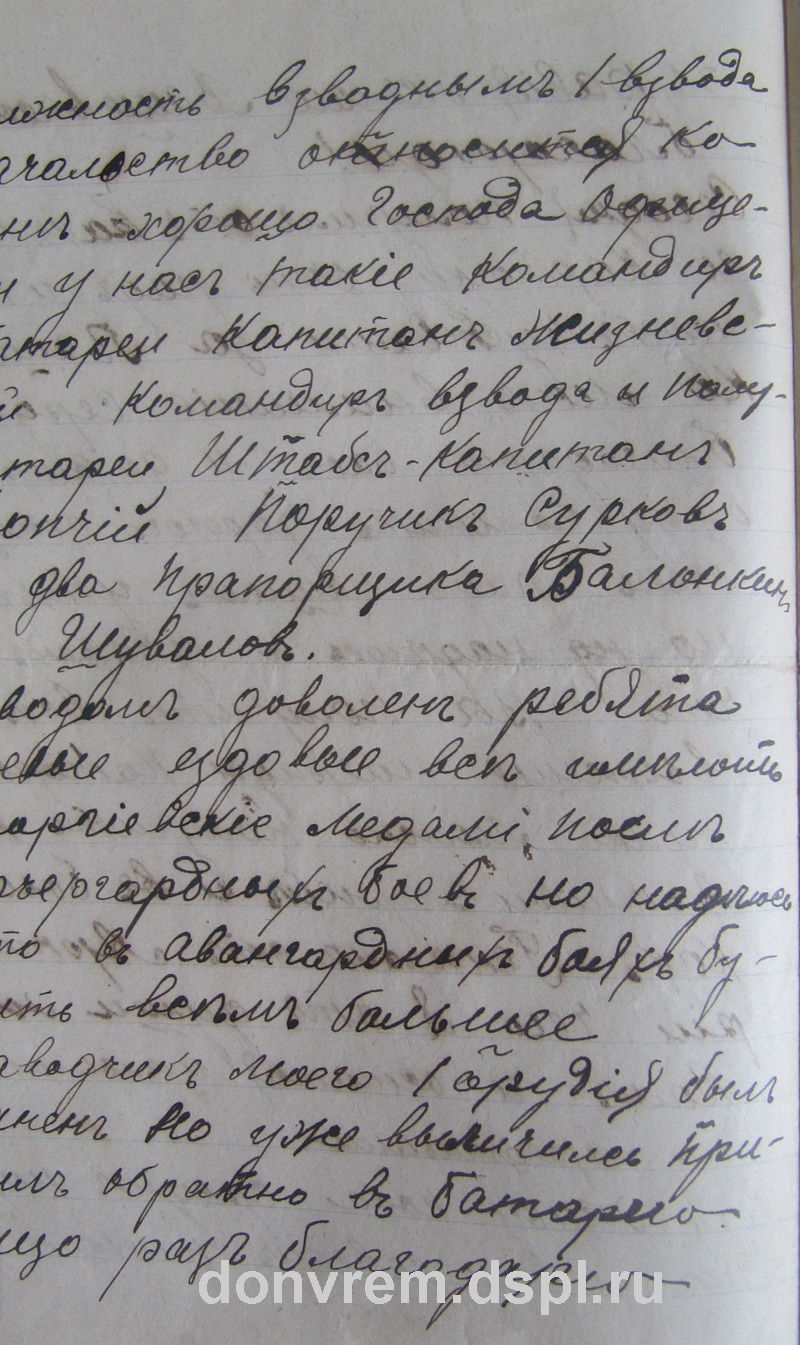 лжность взводнымъ 1 взвода
ачальство относится ко
нмъ хорошо Господа Офице-
и у насъ такіе командиръ
атареи Капитанъ Жизневс-
й Командиръ взвода и полу-
тареи Штабсъ-Капитанъ
опчій Поручикъ Сурковъ
два прапорщика Балонкинъ
Шуваловъ.
водомъ доволенъ ребята
евые ездовые всѣ имѣютъ
оргіевскіе медалі послѣ
рьергардныхъ боевъ но надѣюсь
то въ авангардныхъ бояхъ бу-
етъ всѣмъ большее
аводчикъ моего 1 орудія былъ
ненъ но уже выличился при-
илъ обратно въ батарею
що разъ благодарю
donvrem.dspl.ru